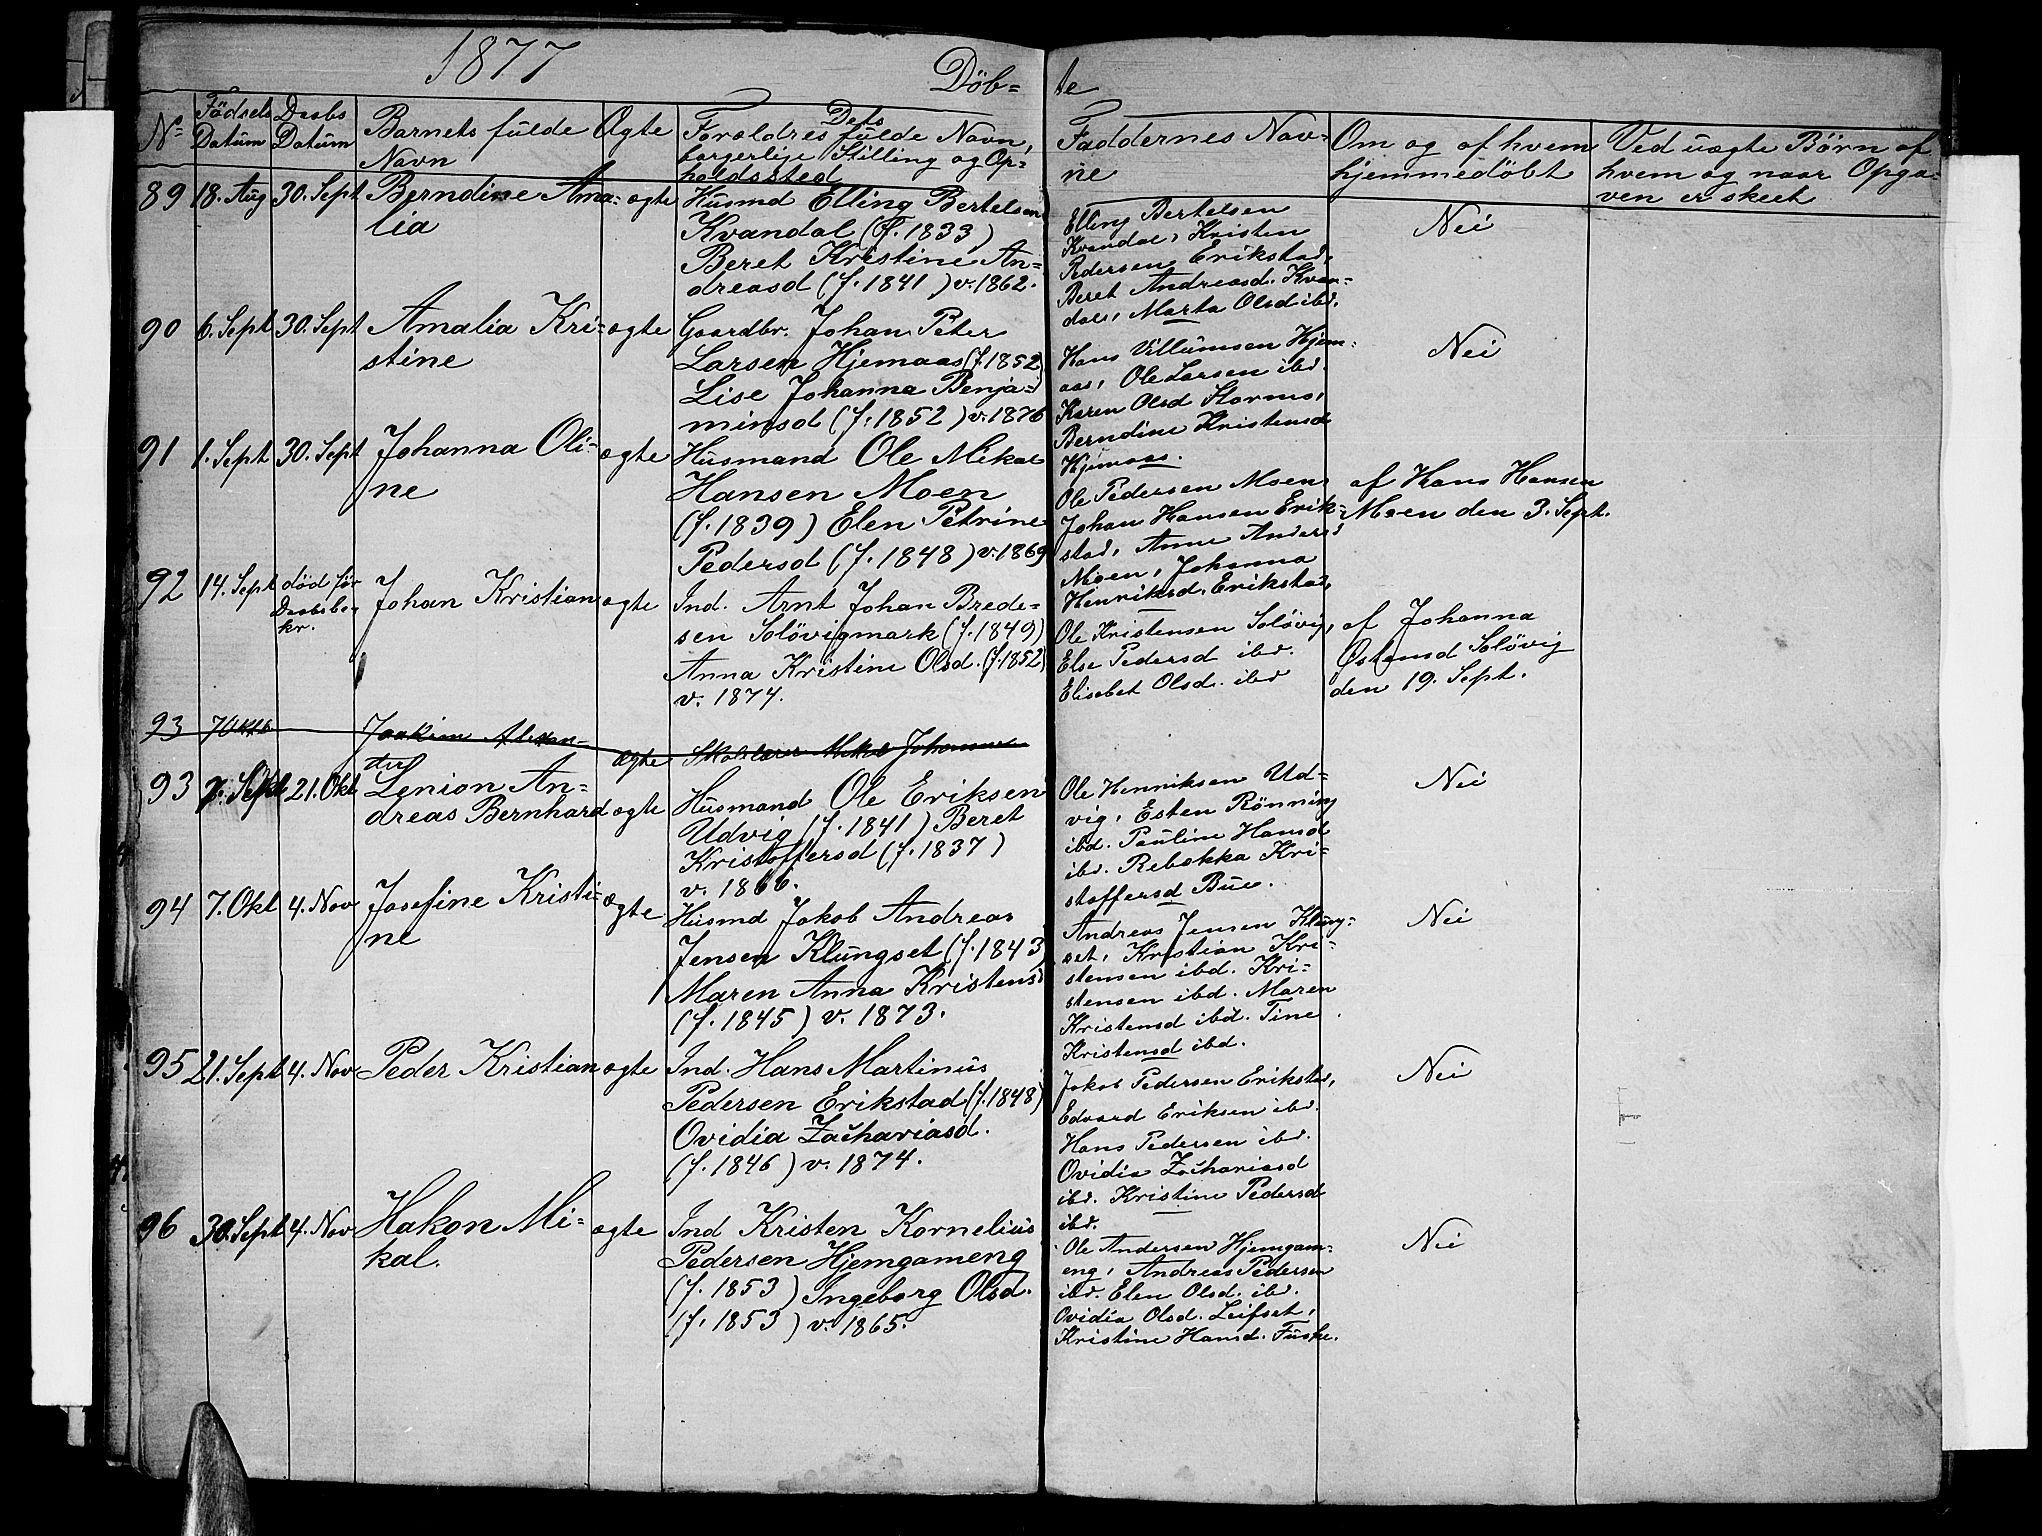 1877
Döb= te
No Födsels Datum Daabs Datum Barnets fulde Navn Ægte Dets Forældres fulde Navn, borgerlige Stilling og Opholdssted Faddernes Navne Om og af hvem hjemmedöbt Ved uægte Börn af hvem og naar Opgaven er skeet
89 18. Aug 30. Sept Berndine Ama=
lia
ægte
Husmd Elling Bertelsen
Kvandal (f. 1833)
Beret Kristine An=
dreasd (f. 1841) v. 1862.
Elling Bertelsen
Kvandal, Kristen
Pedersen Erikstad,
Beret Andreasd. Kvan=
dal, Marta Olsd ibd.
Nei
90 6. Sept 30. Sept Amalia Kri=
stine
ægte
Gaardbr. Johan Peter
Larsen Hjemaas (f. 1852)
Lise Johanna Benja=
minsd (f. 1852) v. 1876
Hans Villumsen Hjem=
aas, Ole Larsen ibd.
Karen Olsd Stormo,
Berndine Kristensd
Hjemaas.
Nei
91 1. Sept 30. Sept Johanna Oli=
ne
ægte
Husmand Ole Mikal
Hansen Moen
(f. 1839) Elen Petrine
Pedersd (f. 1848) v. 1869
Ole Pedersen Moen,
Johan Hansen Erik=
stad, Anne Andersd
Moen, Johanna
Henriksd. Erikstad,
af Hans Hansen
Moen den 3. Sept.
92 14. Sept död før
Daabsbe=
kr.
Johan Kristian
ægte
Ind. Arnt Johan Brede=
sen Solövigmark (f. 1849)
Anna Kristine Olsd. (f. 1852)
v. 1874.
Ole Kristensen Solövig,
Else Pedersd ibd.
Elisabet Olsd. ibd
af Johanna
Østensd Solövig
den 19. Sept.
93 7 Okt Joakim Alexan=
der
ægte
Skolelærer Mikal Johansen
93 7. Okt 21. Okt Lenion An=
dreas Bernhard
ægte
Husmand Ole Eriksen
Udvig (f. 1841) Beret
Kristoffersd (f. 1837)
v. 1866.
Ole Henriksen Ud=
vig, Esten Rönning
ibd. Pauline Hansd
ibd. Rebekka Kri=
stoffersd Bue.
Nei
94 7. Okt 4. Nov Josefine Kristi=
ne
ægte
Husmd Jakob Andreas
Jensen Klungset (f. 1843)
Maren Anna Kristensd
(f. 1845) v. 1873.
Andreas Jensen Klung=
set, Kristian Kri=
stensen ibd. Kri=
stensen ibd. Maren
Kristensd ibd. Tine
Kristensd ibd.
Nei
95 21. Sept 4. Nov Peder Kristian
ægte
Ind. Hans Martinus
Pedersen Erikstad (f. 1848)
Ovidia Zachariasd.
(f. 1846) v. 1874.
Jakob Pedersen Erikstad,
Edvard Eriksen ibd.
Hans Pedersen ibd.
Ovidia Zachariasd
ibd. Kristine Pedersd
ibd.
Nei
96 30. Sept 4. Nov Hakon Mi=
kal.
ægte
Ind Kristen Kornelius
Pedersen Hjemgameng
(f. 1853) Ingeborg Olsd.
(f. 1853) v. 1865.
Ole Andersen Hjemgam=
eng, Andreas Pedersen
ibd. Elen Olsd. ibd.
Ovidia Olsd. Leifset,
Kristine Hansd. Fuske.
Nei